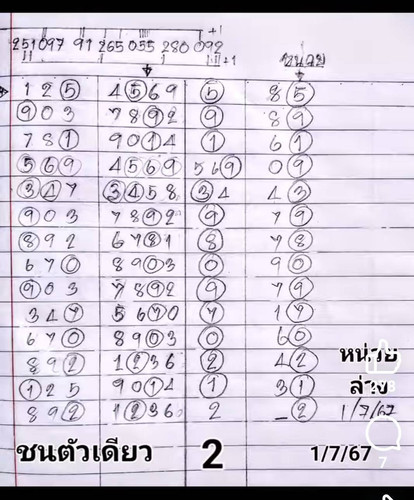 +1
251 097 91 265 055 280 092
+1
ชนวย
1 2 5 4 5 6 9 5 8 5
9 0 3 7 8 9 2 9 8 9
7 8 1 9 0 1 4 1 6 1
5 6 9 4 5 6 9 5 6 9 0 9
3 4 7 3 4 5 8 3 4 4 3
9 0 3 7 8 9 2 9 7 9
8 9 2 6 7 8 1 8 7 8
6 7 0 8 9 0 3 0 9 0
9 0 3 7 8 9 2 9 7 9
3 4 7 5 6 7 0 7 1 7
6 7 0 8 9 0 3 0 6 0
8 9 2 1 2 3 6 2 4 2 หน่วย
1 2 5 9 0 1 4 1 3 1 ล่าง
8 9 2 1 2 3 6 2 _ 2 1/7/67
ชนตัวเดียว 2 1/7/67
7